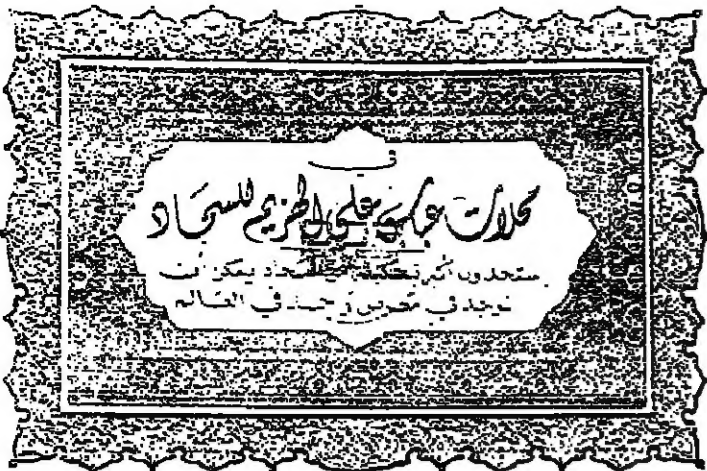 في
محلات عباس علي الهزيم للسجاد
ستجدون أكبر تشكيلة من السجاد يمكن أن
توجد في معرض واحد في العالم